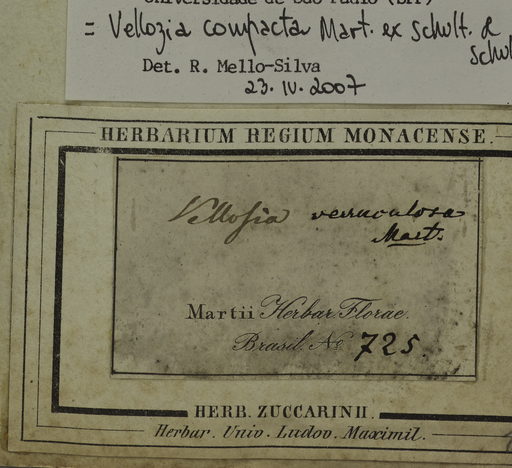 Universidade de São Paulo (SPF)
= Vellozia compacta Mart. ex Schult. &
Schul
Det. R. Mello-Silva
23.IV.2007
HERBARIUM REGIUM MONACENSE.
Vellosia verruculosa
Mart.
Martii Herbar. Florae.
Brasil. No 725.
HERB. ZUCCARINII.
Herbar. Univ. Ludov. Maximil.